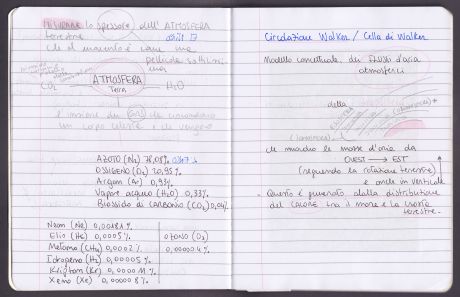 MISURARE lo spessore dell'ATMOSFERA
terrestre
che al momento è come una
pellicola sottilissima
CO₂ ATMOSFERA H₂O
Terra
è l'insieme dei GAS che circondano
un corpo celeste
AZOTO (N₂) 78,08%
OSSIGENO (O₂) 20,95%
Argon (Ar) 0,93%
Vapore acqueo (H₂O) 0,33%
Biossido di carbonio (CO₂) 0,04%
Neon (Ne) 0,00181%
Elio (He) 0,0005%
Metano (CH₄) 0,0002%
Idrogeno (H₂) 0,00005%
Kripton (Kr) 0,000011%
Xeno (Xe) 0,000008%
OZONO (O₃)
0,000004%
Circolazione Walker / Cella di Walker
Modello concettuale dei FLUSSI d'aria
atmosferici
della
che muovono le masse d'aria da
OVEST → EST
(seguendo la rotazione terrestre)
e anche in verticale
Questo è generato dalla distribuzione
del CALORE tra il mare e la
terrestre.